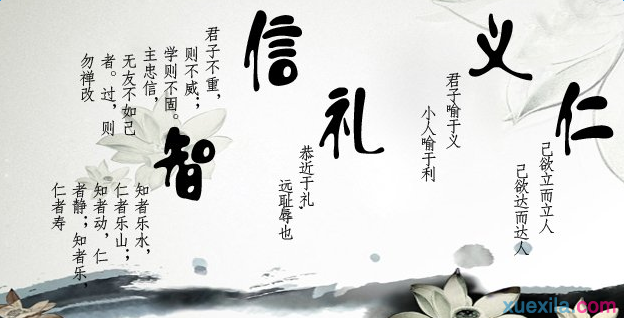 仁
己欲立而立人
己欲达而达人
义
君子喻于义
小人喻于利
礼
恭近于礼,
远耻辱也
信
君子不重，
则不威；
学则不固。
主忠信，
无友不如己
者。过，则
勿禅改
智
知者乐水，
仁者乐山；
知者动，仁
者静；知者乐，
仁者寿
xuexila.com